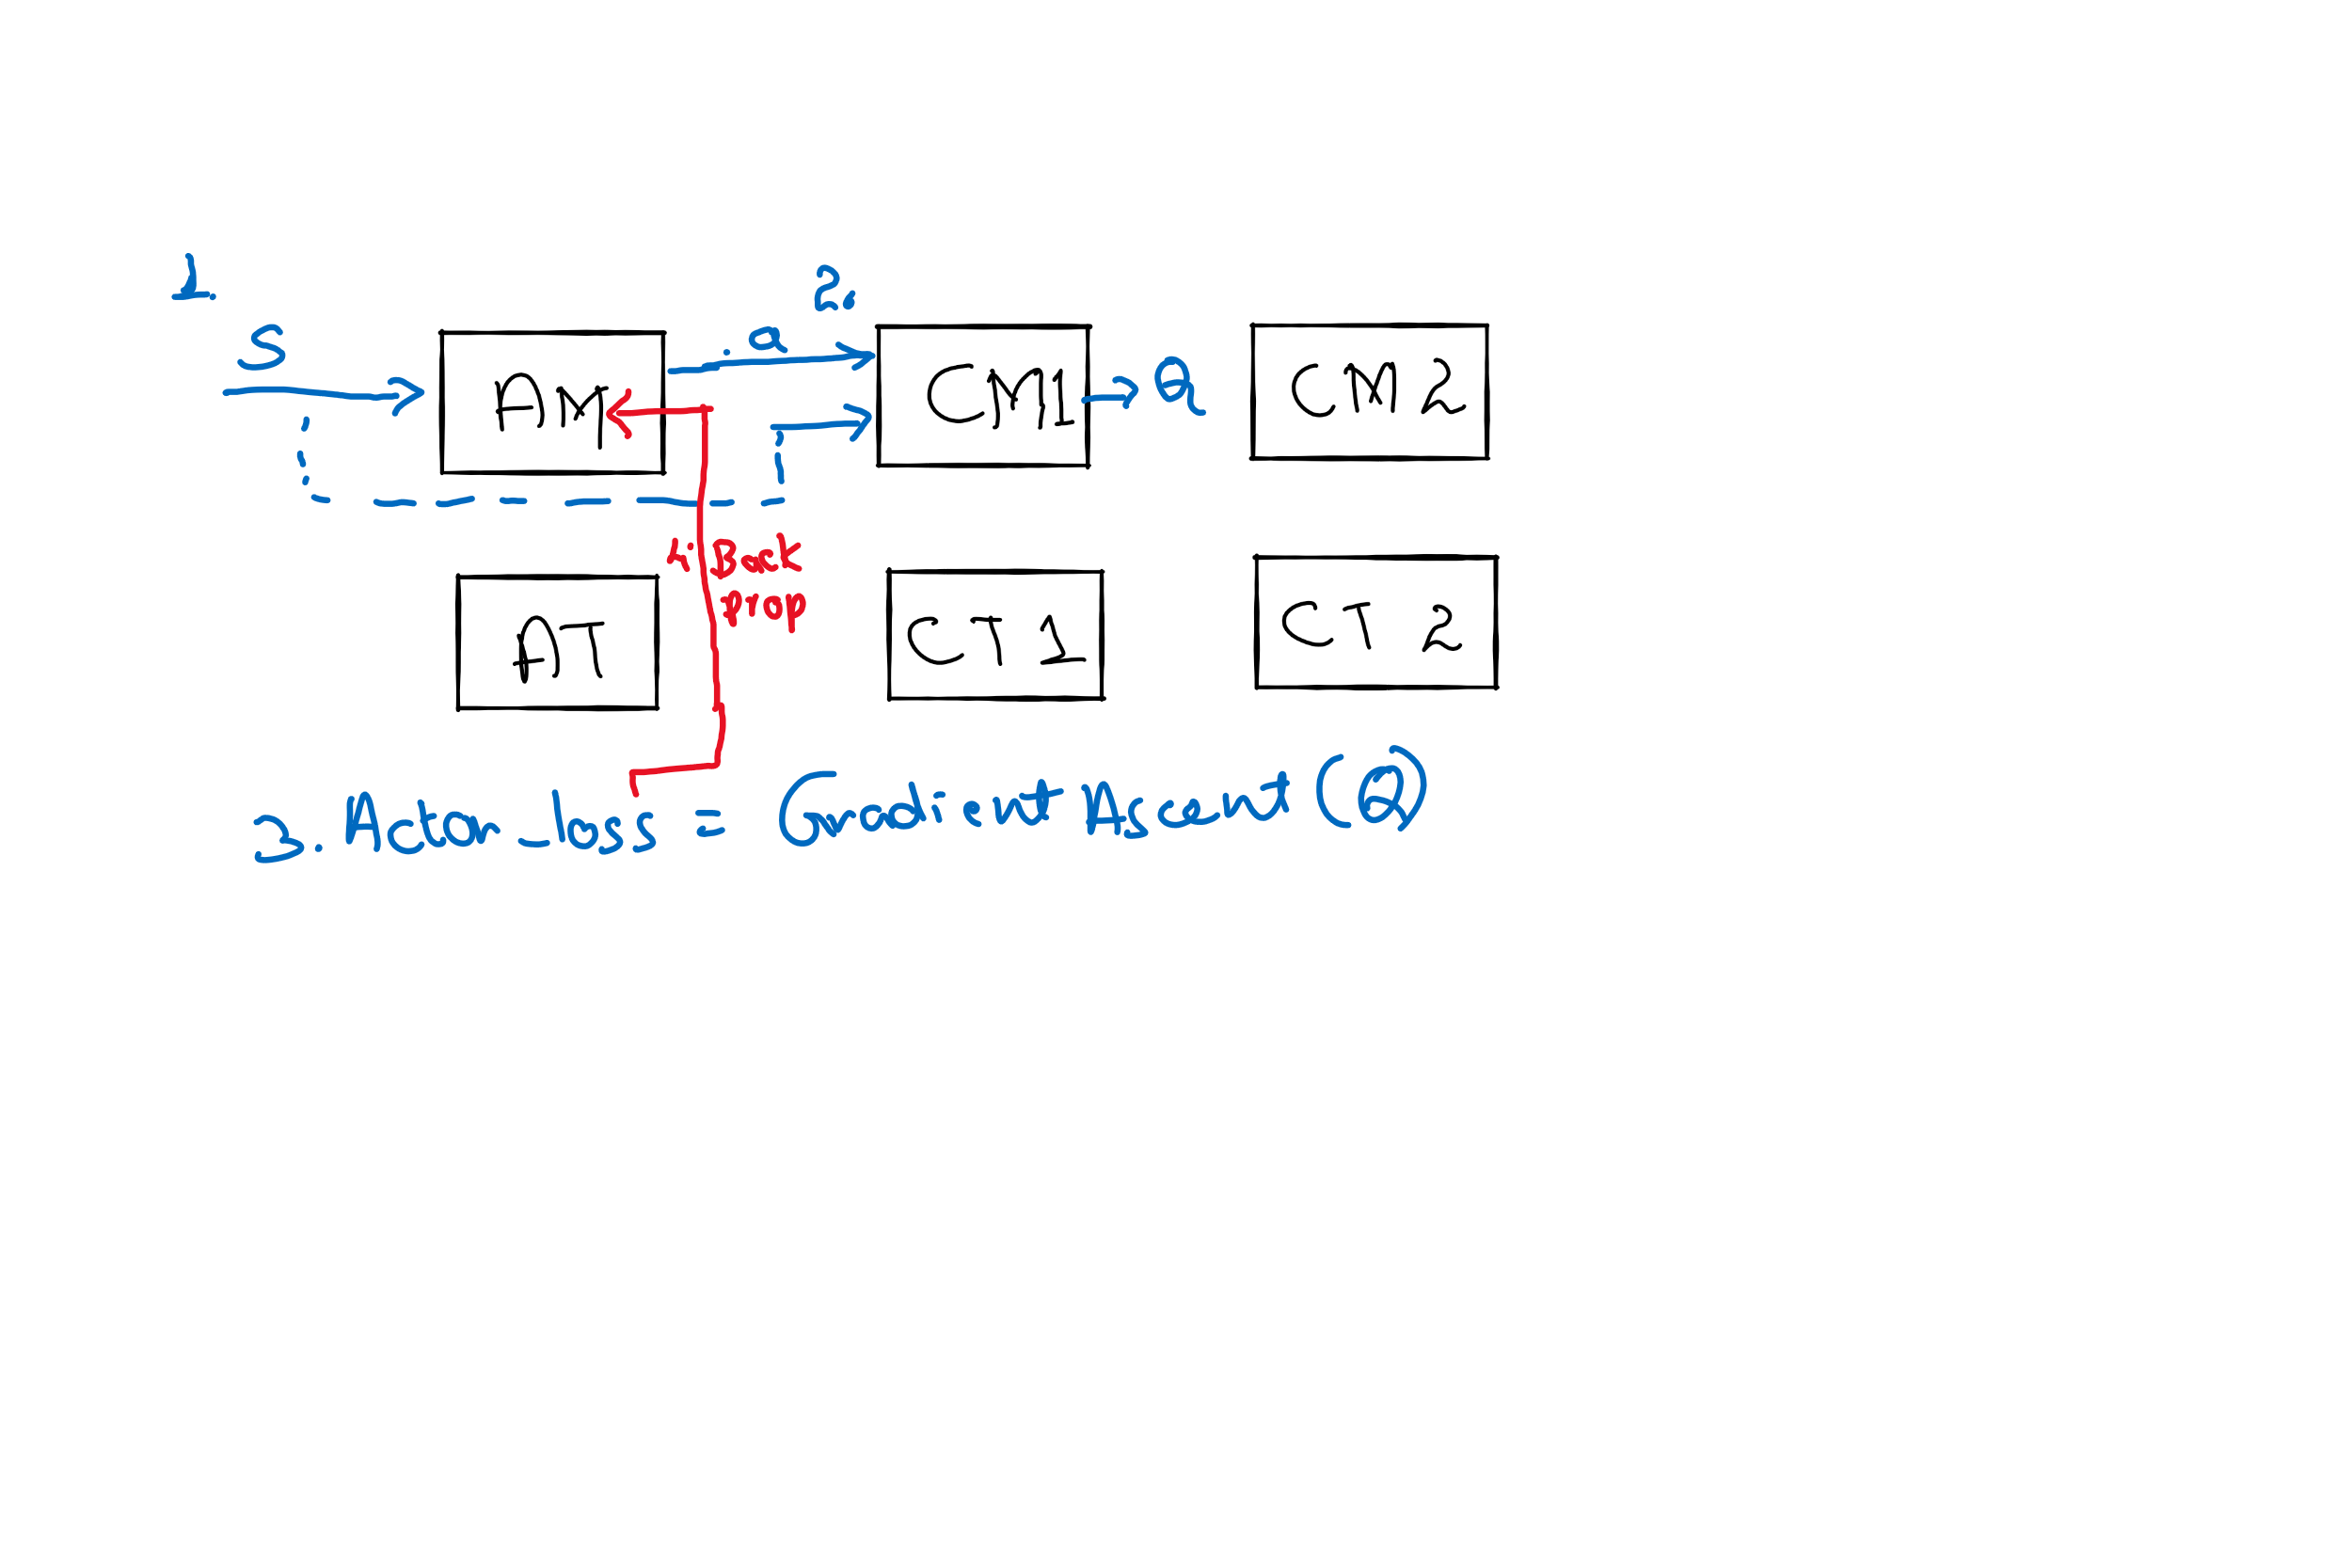 1.
2.
S
a
AM
CM1
Q
CM2
4. Back
prop
AT
CT1
CT2
3. Acton_loss = Gradient Ascent (Q)